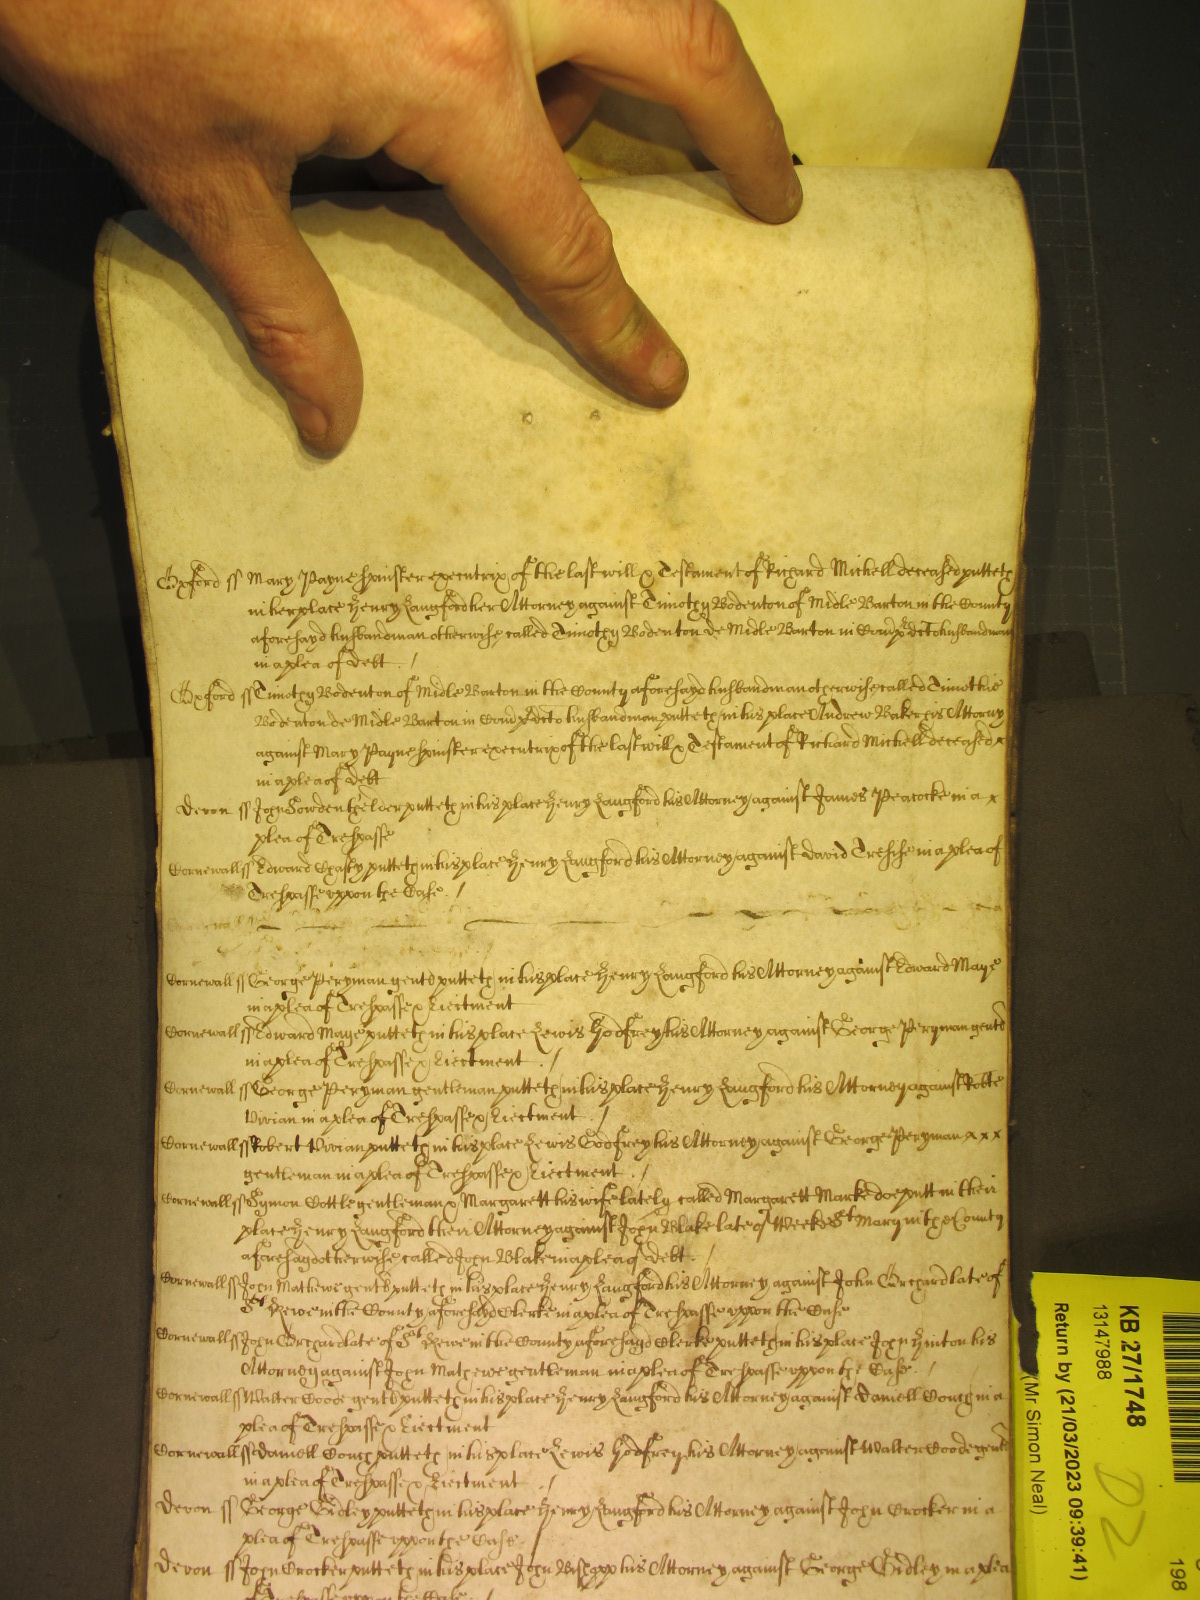 Oxford ss Mary Payne spinster executrix of the last will & Testament of Richard Michell deceased putteth
in her place Henry Langford her Attorney against Timothy Bodenton of Midle Barton in the County
aforesayd husbandman otherwise called Timothy Bodenton de Midle Barton in Com p^rdcto husbandman
in a plea of debt . /
Oxford ss Timothy Bodenton of Midle Barton in the County aforesayd husbandman otherwise called Timothie
Bodenton de Midle Barton in Com p^rdcto husbandman putteth in his place Andrew Baker his Attorny
against Mary Payne spinster executrix of the last will & Testament of Richard Michell deceased x
in a plea of debt
Devon ss John Sowden the elder putteth in his place Henry Langford his Attorney against James Peacocke in a x
plea of Trespasse
Cornewall ss Edward putteth in his place Henry Langford his Attorney against David in a plea of
Trespasse uppon the Case . /
Cornewall ss George Peryman gent putteth in his place Henry Langford his Attorney against Edward Maye
in a plea of Trespasse & Eiectment
Cornewall ss Edward Maye putteth in his place Lewis Godfrey his Attorney against George Peryman gent
in a plea of Trespasse & Eiectment . /
Cornewall ss George Peryman gentleman putteth in his place Henry Langford his Attorney against Robte
Vivian in a plea of Trespasse & Eiectment . /
Cornewall ss Robert Vivian putteth in his place Lewis Godfrey his Attorney against George Peryman x x x
gentleman in a plea of Trespasse & Eiectment . /
Cornewall ss Symon Cottle gentleman & Margarett his wife lately called Margarett Marke doe putt in their
place Henry Langford their Attorney against John Blake late of Weeke St Mary in the County
aforesayd otherwise called John Blake in a plea of debt . /
Cornewall ss John Mathewe gent putteth in his place Henry Langford his Attorney against John Orchard late of
St Kewe in the County aforesayd Clerke in a plea of Trespasse uppon the Case
Cornewall ss John Orchard late of St Kewe in the County aforesayd Clerke putteth in his place John Hinton his
Attorney against John Mathewe gentleman in a plea of Trespasse uppon the Case . /
Cornewall ss Walter Coode gent putteth in his place Henry Langford his Attorney against Daniell Couch in a
plea of Trespasse & Eiectment
Cornewall ss Daniell Couch putteth in his place Lewis Godfrey his Attorney against Walter Coode gent
in a plea of Trespasse & Eiectment . /
Devon ss George Gidley putteth in his place Henry Langford his Attorney against John Crocker in a
plea of Trespasse uppon the Case
Devon ss John Crocker putteth in his place John Bishopp his Attorney against George Gidley in a plea
of Trespasse uppon the Case
KB 27/1748
13147988
Return by (21/03/2023 09:39:41)
(Mr Simon Neal)
D2
198